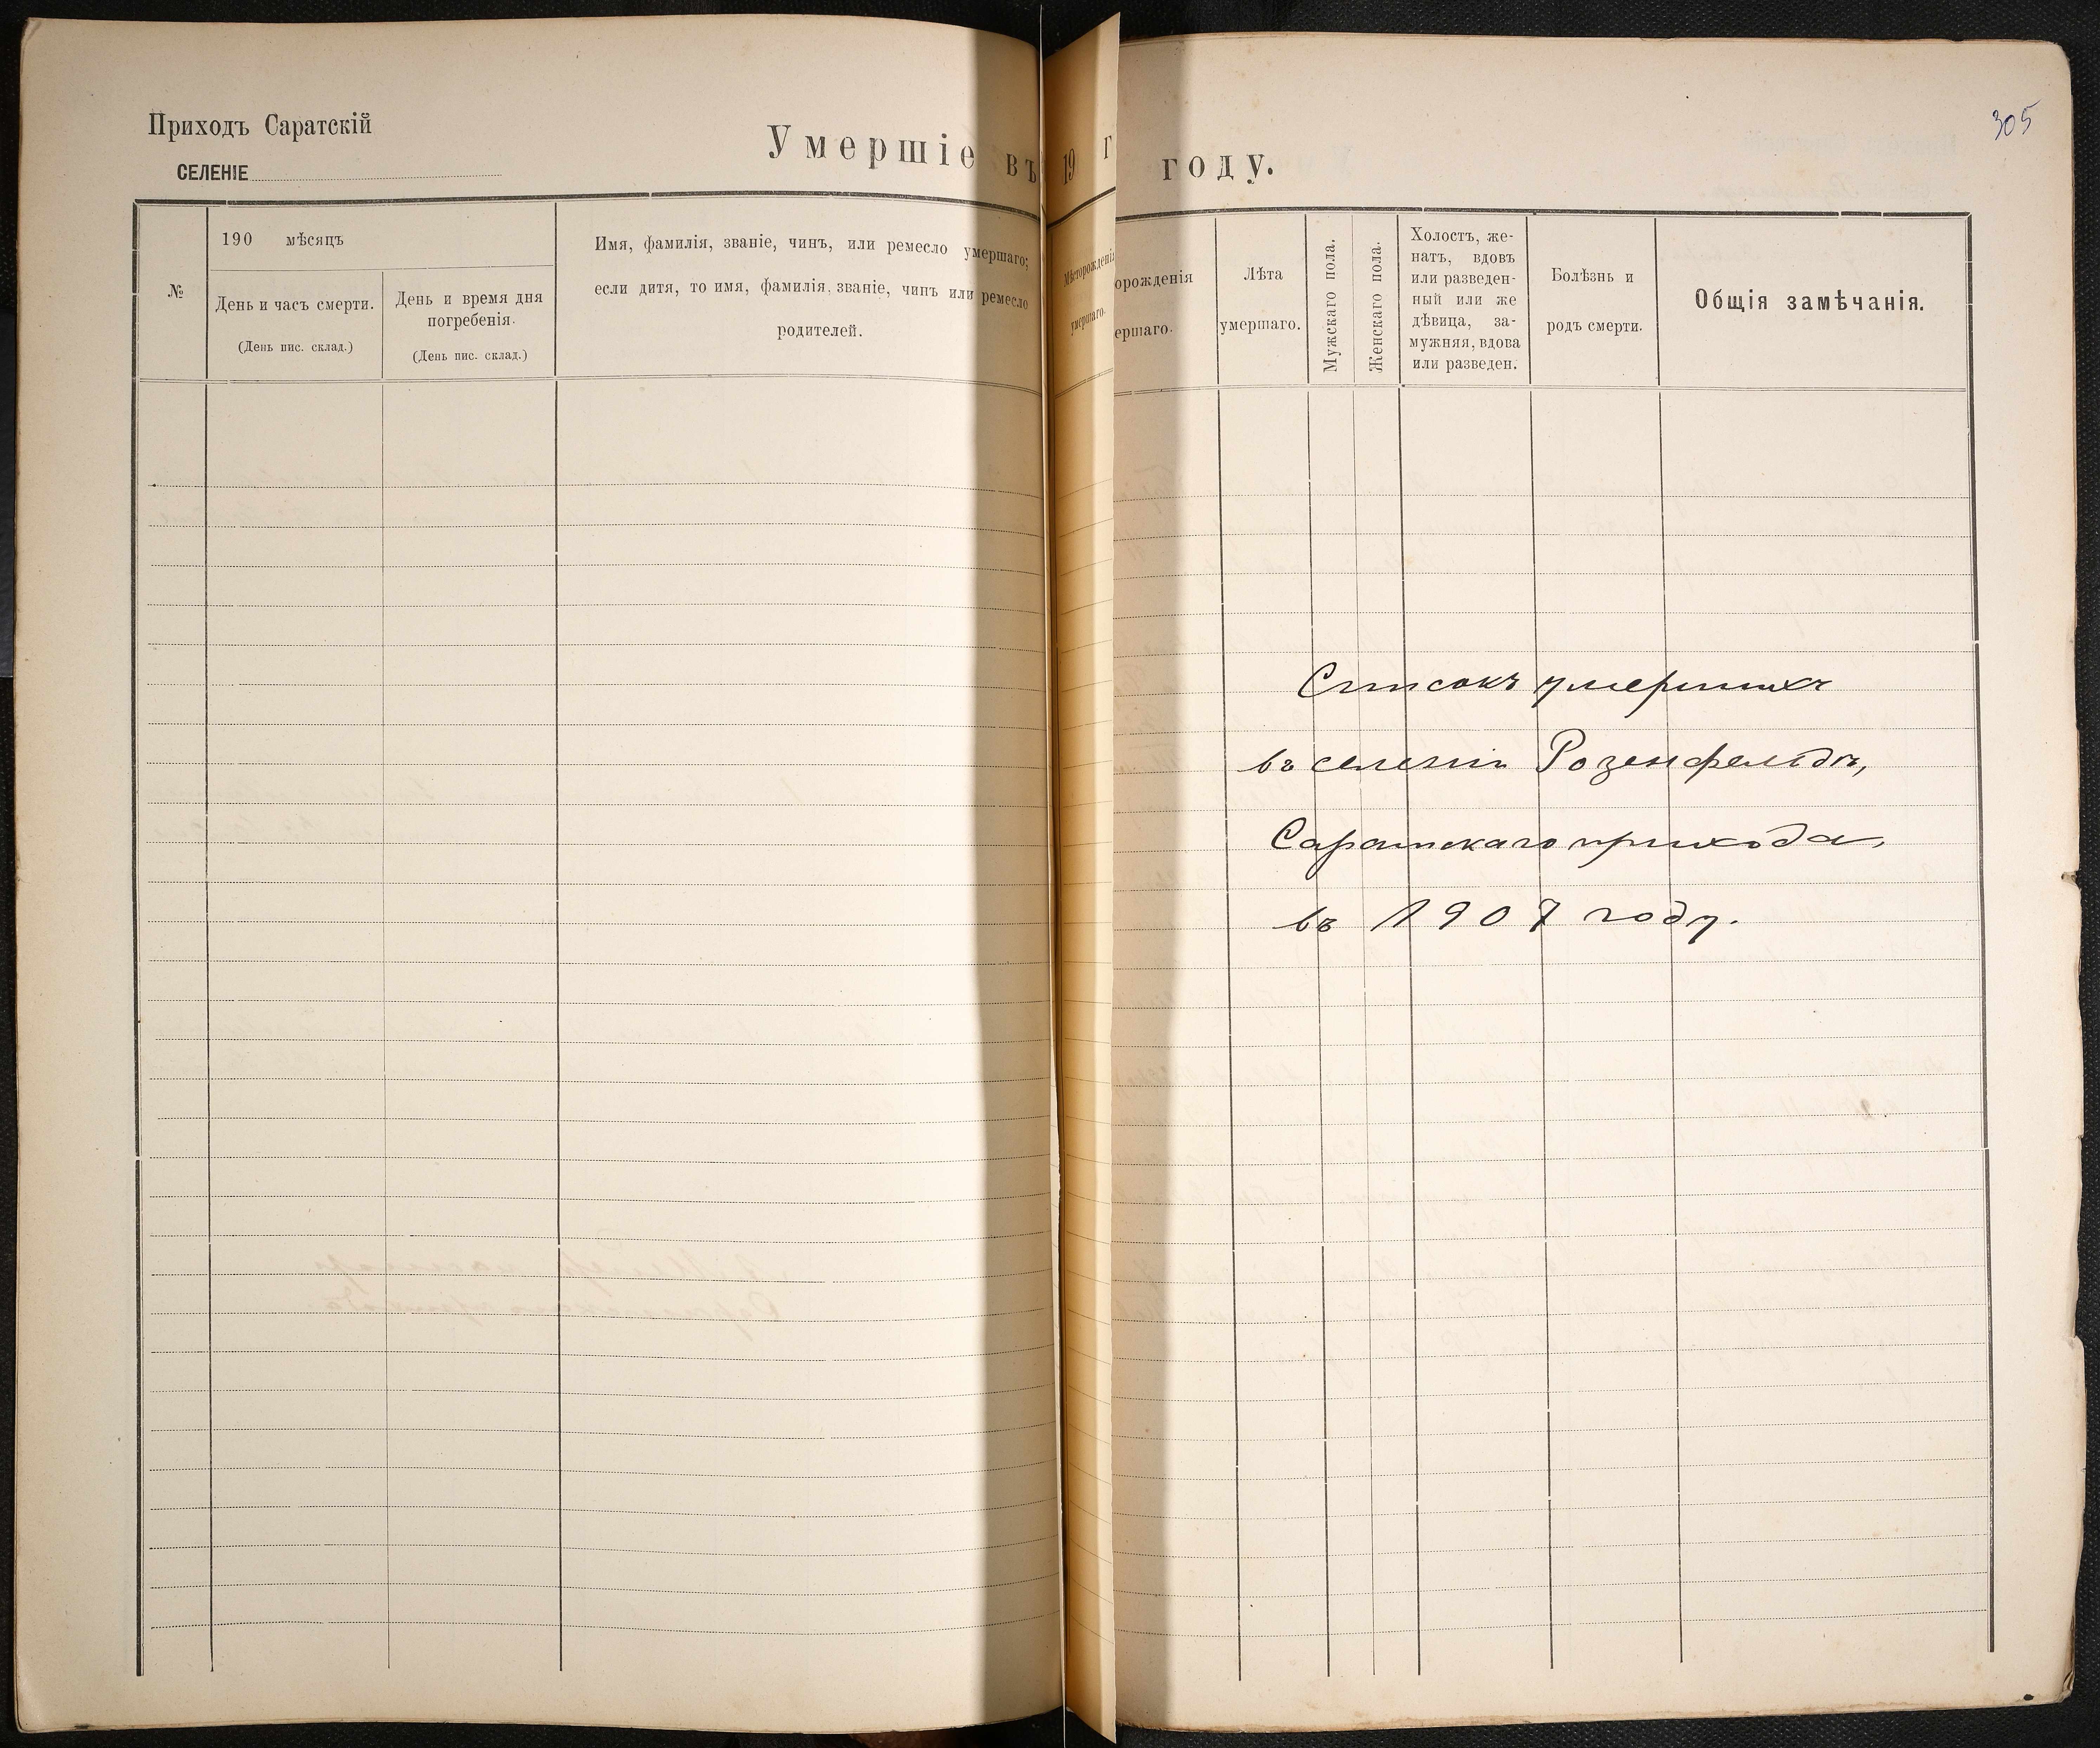 305
Приходъ Саратскій
СЕЛЕНІЕ
Умершіе въ 19 году.
№
190 мѣсяцъ
День и часъ смерти.
(День пис. склад.)
День и время дня
погребенія.
(День пис. склад.)
Имя, фамилія, званіе, чинъ, или ремесло умершаго;
если дитя, то имя, фамилія, званіе, чинъ или ремесло
родителей.
Мѣсторожденія
умершаго.
орожденія
ершаго.
Лѣта
умершаго.
Мужскаго пола.
Женскаго пола.
Холостъ, же-
натъ, вдовъ
или разведен-
ный или же
дѣвица, за-
мужняя, вдова
или разведен.
Болѣзнь и
родъ смерти.
Общія замѣчанія.
Списокъ умершихъ
въ селеніи Розенфельдъ,
Саратскаго прихода,
въ 1907 году.